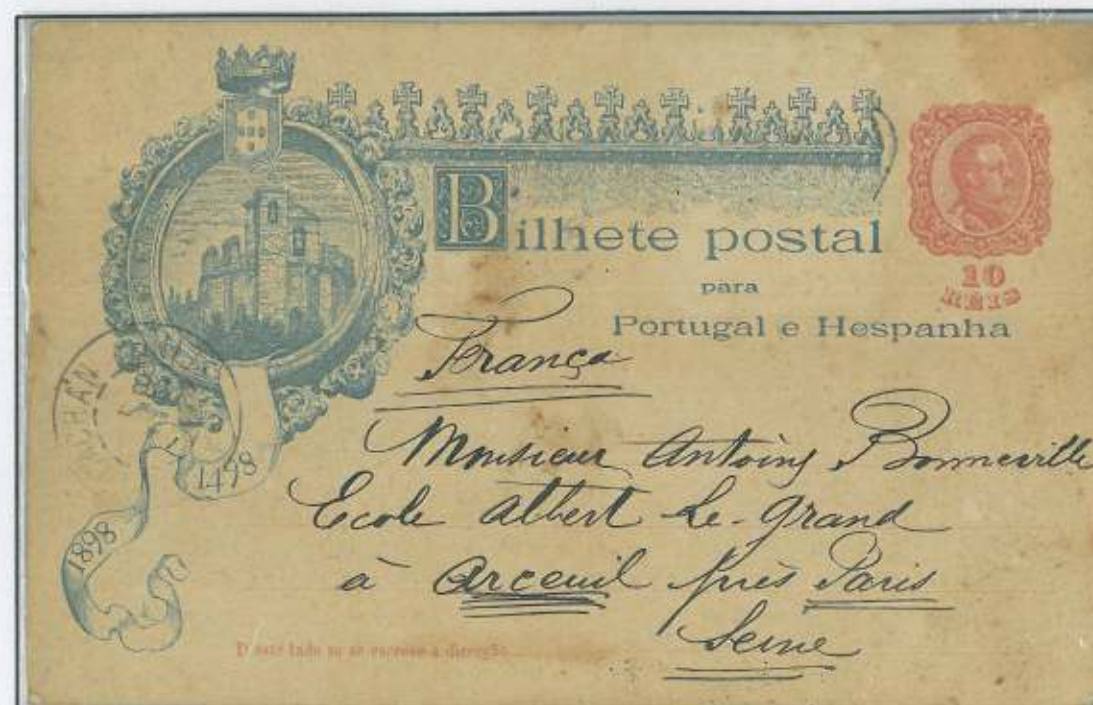 Bilhete postal
para
Portugal e Hespanha
10
REIS
França
Monsieur Antoing Bonneville
Ecole Albert Le-Grand
à Arceuil près Paris
Seine
1498
1898
D'este lado só se escreve a direcção